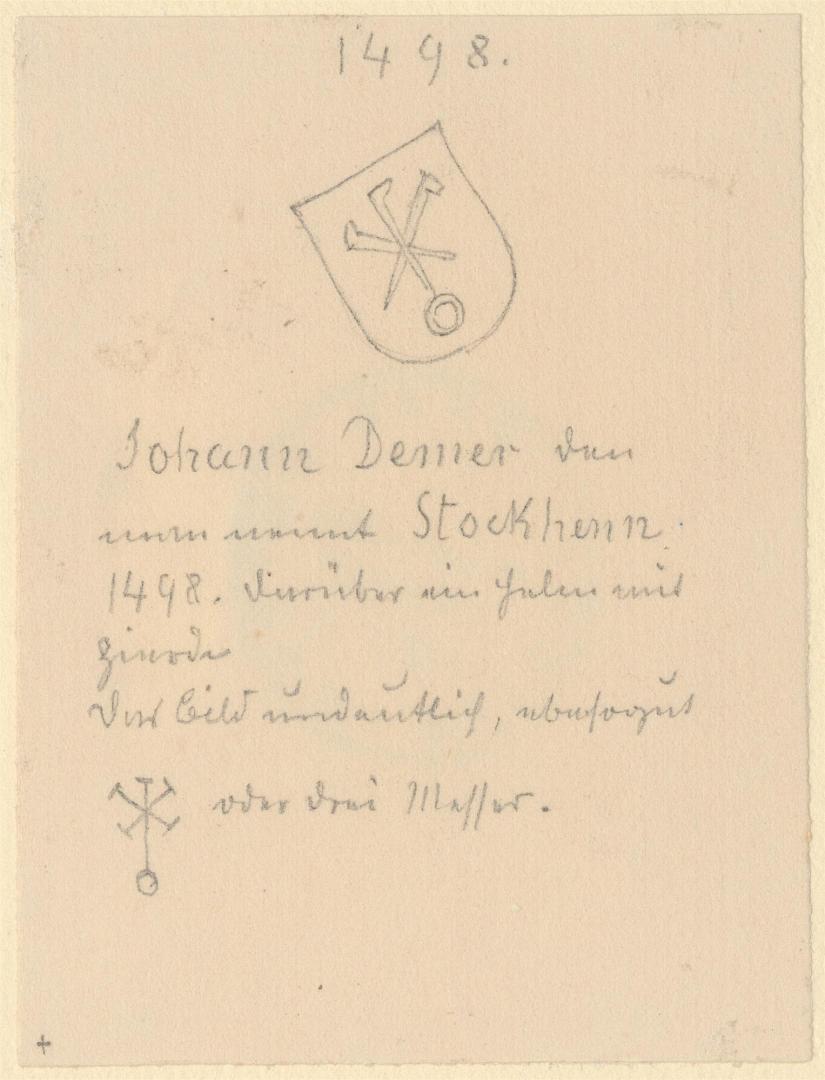 1498.
Johann Demer den
man nennt Stockhenn
1498. Darüber ein Helm mit
Zierde
Das Bild undeutlich, ebensogut
oder drei Messer.